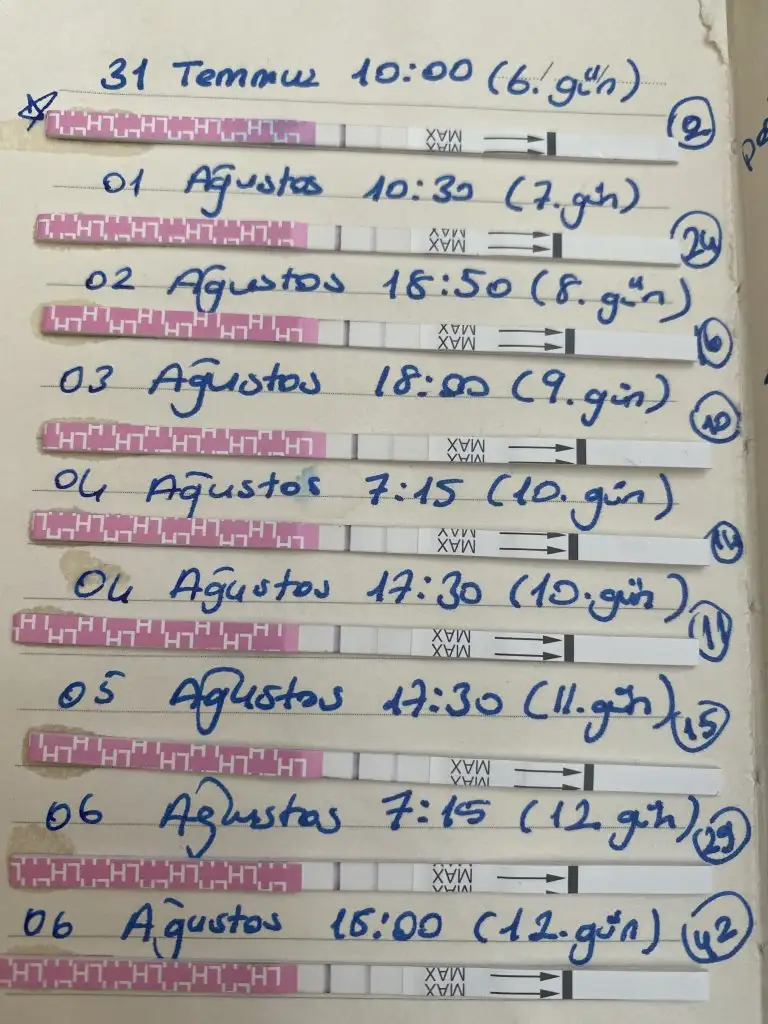 31 Temmuz 10:00 (6. gün)
2
LH LH LH LH LH LH LH MAX MAX
01 Ağustos 10:30 (7. gün)
24
LH LH LH LH LH LH LH MAX MAX
02 Ağustos 18:50 (8. gün)
6
LH LH LH LH LH LH LH MAX MAX
03 Ağustos 18:00 (9. gün)
10
LH LH LH LH LH LH LH MAX MAX
04 Ağustos 7:15 (10. gün)
LH LH LH LH LH LH LH MAX MAX
04 Ağustos 17:30 (10. gün)
11
LH LH LH LH LH LH LH MAX MAX
05 Ağustos 17:30 (11. gün)
15
LH LH LH LH LH LH LH MAX MAX
06 Ağustos 7:15 (12. gün)
29
LH LH LH LH LH LH LH MAX MAX
06 Ağustos 16:00 (12. gün)
42
LH LH LH LH LH LH LH MAX MAX